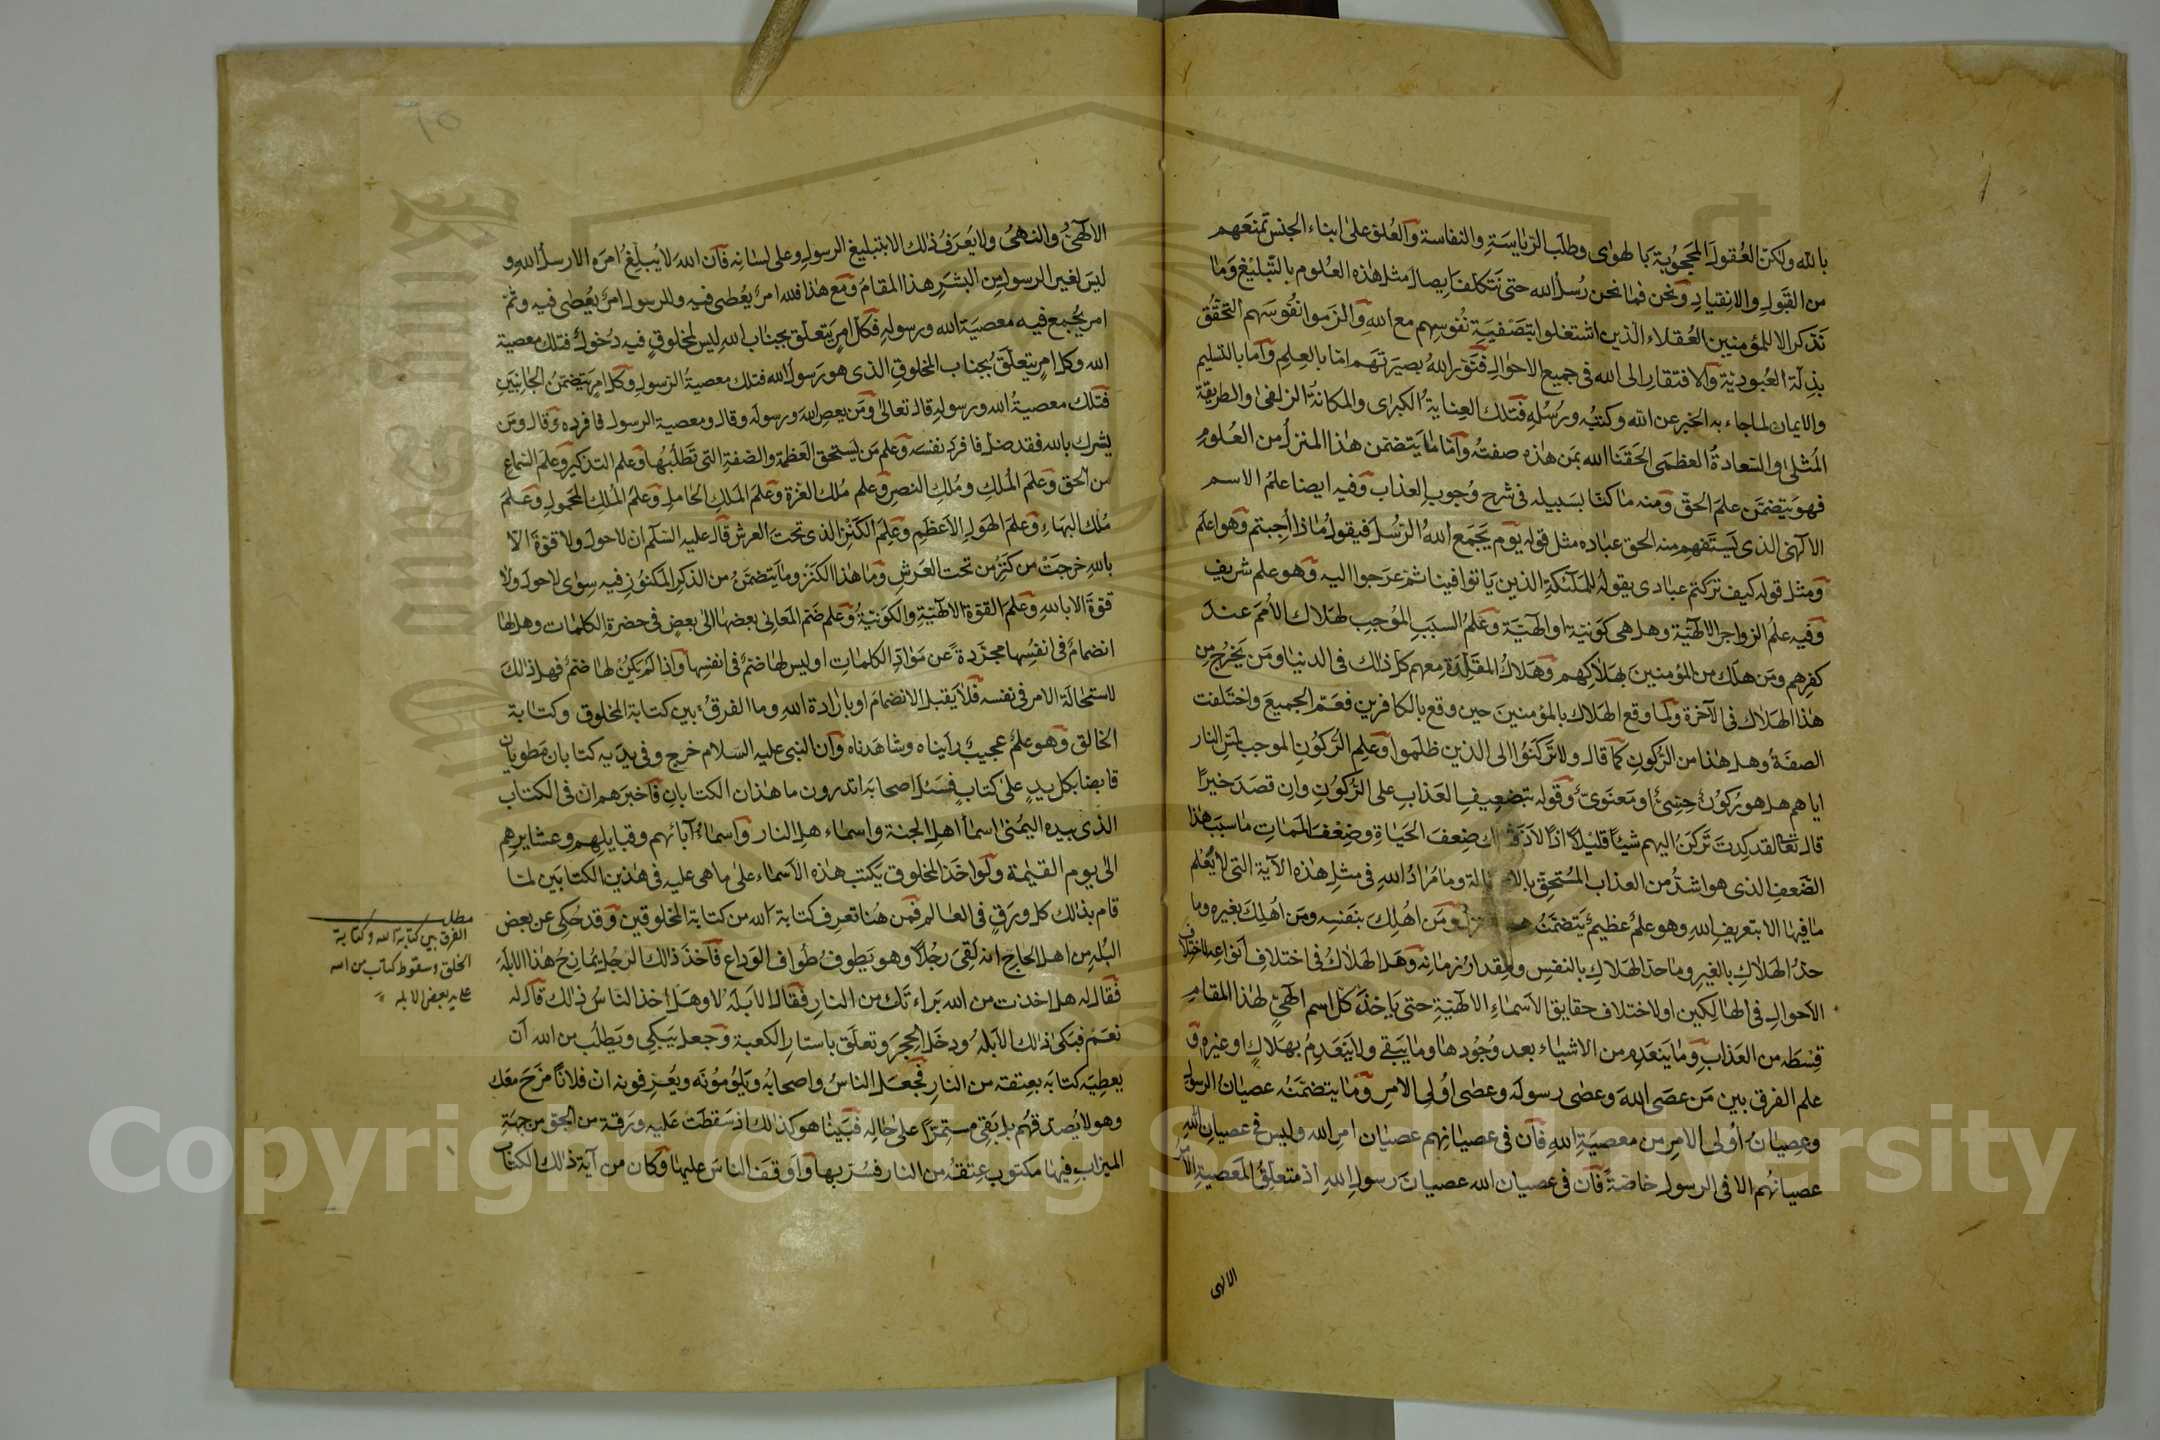 بالله ولكن العقول المحجوبة بالهوى وطلب الرياسة والنفاسة والعلو على ابناء الجنس تمنعهم
من القبول والانقياد ونحن فما نحن رسل الله حتى نتكلف ايصال مثل هذه العلوم بالتبليغ وما
نذكر الا للمؤمنين العقلاء الذين اشتغلوا بتصفية نفوسهم مع الله والزموا نفوسهم التحقق
بذلة العبودية والافتقار الى الله في جميع الاحوال فنور الله بصيرتهم اما بالعلم واما بالتسليم
والايمان لما جاء به الخبر عن الله وكتبه ورسله فتلك العناية الكبرى والمكانة الزلفى والطريقة
المثلى والسعادة العظمى الحقنا الله بمن هذه صفته واما ما يتضمن هذا المنزل من العلوم
فهو يتضمن علم الحق ومنه ما كنا بسبيله في شرح وجوب العذاب وفيه ايضا علم الاسم
الالهى الذى يستفهم منه الحق عباده مثل قوله يوم يجمع الله الرسل فيقول ماذا اجبتم وهو اعلم
ومثل قوله كيف تركتم عبادى يقوله للملئكة الذين باتوا فينا ثم عرجوا اليه وهو علم شريف
وفيه علم الزواجر الالهية وهل هى كونية او الهية وعلم السبب الموجب لهلاك الامم عند
كفرهم ومن هلك من المؤمنين بهلاكهم وهلاك المقلدة معهم كل ذلك في الدنيا ومن يخرج من
هذا الهلاك في الآخرة ولما وقع الهلاك بالمؤمنين حين وقع بالكافرين فعم الجميع واختلفت
الصفة وهل هذا من الركون كما قال ولا تركنوا الى الذين ظلموا وعلم الركون الموجب لمس النار
اياهم هل هو ركون حسى او معنوى وقوله بتضعيف العذاب على الركون وان قصد خيرا
قال تعالى لقد كدت تركن اليهم شيئا قليلا اذا لاذقناك ضعف الحياة وضعف الممات ما سبب هذا
الضعف الذى هو اشد من العذاب المستحق بالاصالة وما مراد الله في مثل هذه الآية التى لا يعلم
ما فيها الا بتعريف الله وهو علم عظيم يتضمنه هذا المنزل ومن اهلك بنفسه ومن اهلك بغيره وما
حد الهلاك بالغير وما حد الهلاك بالنفس ومقدار زمانه وهل الهلاك في اختلاف انواعه لاختلاف
الاحوال في الهالكين او لاختلاف حقايق الاسماء الالهية حتى ياخذ كل اسم الهى لهذا المقام
قسطه من العذاب وما ينعدم من الاشياء بعد وجودها وما يبقى ولا ينعدم بهلاك او غيره و
علم الفرق بين من عصى الله وعصى رسوله وعصى اولى الامر وما يتضمنه عصيان الرسول
وعصيان اولى الامر من معصية الله فان في عصيانهم عصيان امر الله وليس في عصيان الله
عصيانهم الا في الرسول خاصة فان في عصيان الله عصيان رسول الله اذ متعلق المعصية الامر
الالهى
١٥
الالهى والنهى ولا يعرف ذلك الا بتبليغ الرسول وعلى لسانه فان الله لا يبلغ امره الا رسل الله و
ليس لغير الرسول من البشر هذا المقام ومع هذا فلله امر يعطى فيه وللرسول امر يعطى فيه وثم
امر يجمع فيه معصية الله ورسوله فكل امر يتعلق بجناب الله ليس لمخلوق فيه دخول فتلك معصية
الله وكل امر يتعلق بجناب المخلوق الذى هو رسول الله فتلك معصية الرسول وكل امر يتضمن الجانبين
فتلك معصية الله ورسوله قال تعالى ومن يعص الله ورسوله وقال ومعصية الرسول فافرده وقال ومن
يشرك بالله فقد ضل فافرد نفسه وعلم من يستحق العظمة والصفة التى تطلبها وعلم التذكير وعلم السماع
من الحق وعلم الملك وملك النصر وعلم ملك العزة وعلم الملك الحامل وعلم الملك المحمول وعلم
ملك البهاء وعلم الهول الاعظم وعلم الكنز الذى تحت العرش قال عليه السلام ان لا حول ولا قوة الا
بالله خرجت من كنز من تحت العرش وما هذا الكنز وما يتضمن من الذكر المكنوز فيه سوى لا حول ولا
قوة الا بالله وعلم القوة الالهية والكونية وعلم ضم المعانى بعضها الى بعض في حضرة الكلمات وهل لها
انضمام في انفسها مجردة عن مواد الكلمات او ليس لها ضم في انفسها واذا لم يكن لها ضم فهل ذلك
لاستحالة الامر في نفسه فلا يقبل الانضمام او بارادة الله وما الفرق بين كتابة المخلوق وكتابة
الخالق وهو علم عجيب رايناه وشاهدناه وان النبى عليه السلام خرج وفي يديه كتابان مطويان
قابضا بكل يد على كتاب فسئل اصحابه اتدرون ما هذان الكتابان فاخبرهم ان في الكتاب
الذى بيده اليمنى اسماء اهل الجنة واسماء آبائهم وقبايلهم وعشايرهم
الى يوم القيمة ولو اخذ المخلوق يكتب هذه الاسماء على ما هى عليه في هذين الكتابين لما
قام بذلك كل ورق في العالم فمن هنا تعرف كتابة الله من كتابة المخلوقين وقد حكى عن بعض
البله من اهل الحاج انه لقى رجلا وهو يطوف طواف الوداع فاخذ ذلك الرجل يمازح هذا الابله
فقال له هل اخذت من الله براءتك من النار فقال الابله لا وهل اخذ الناس ذلك قال له
نعم فبكى ذلك الابله ودخل الحجر وتعلق باستار الكعبة وجعل يبكى ويطلب من الله ان
يعطيه كتابه بعتقه من النار فجعل الناس واصحابه ويلومونه ويعرفونه ان فلانا مزح معك
وهو لا يصدقهم بل بقى مستمرا على حاله فبينا هو كذلك اذ سقطت عليه ورقة من الجو من جهة
الميزاب فيها مكتوب عتقه من النار فسر بها واوقف الناس عليها وكان من آية ذلك الكتاب
مطلب
الفرق بين كتابة الله وكتابة
الخلق وسقوط كتاب من الله
على يد بعض الابله
Copyright © King Saud University